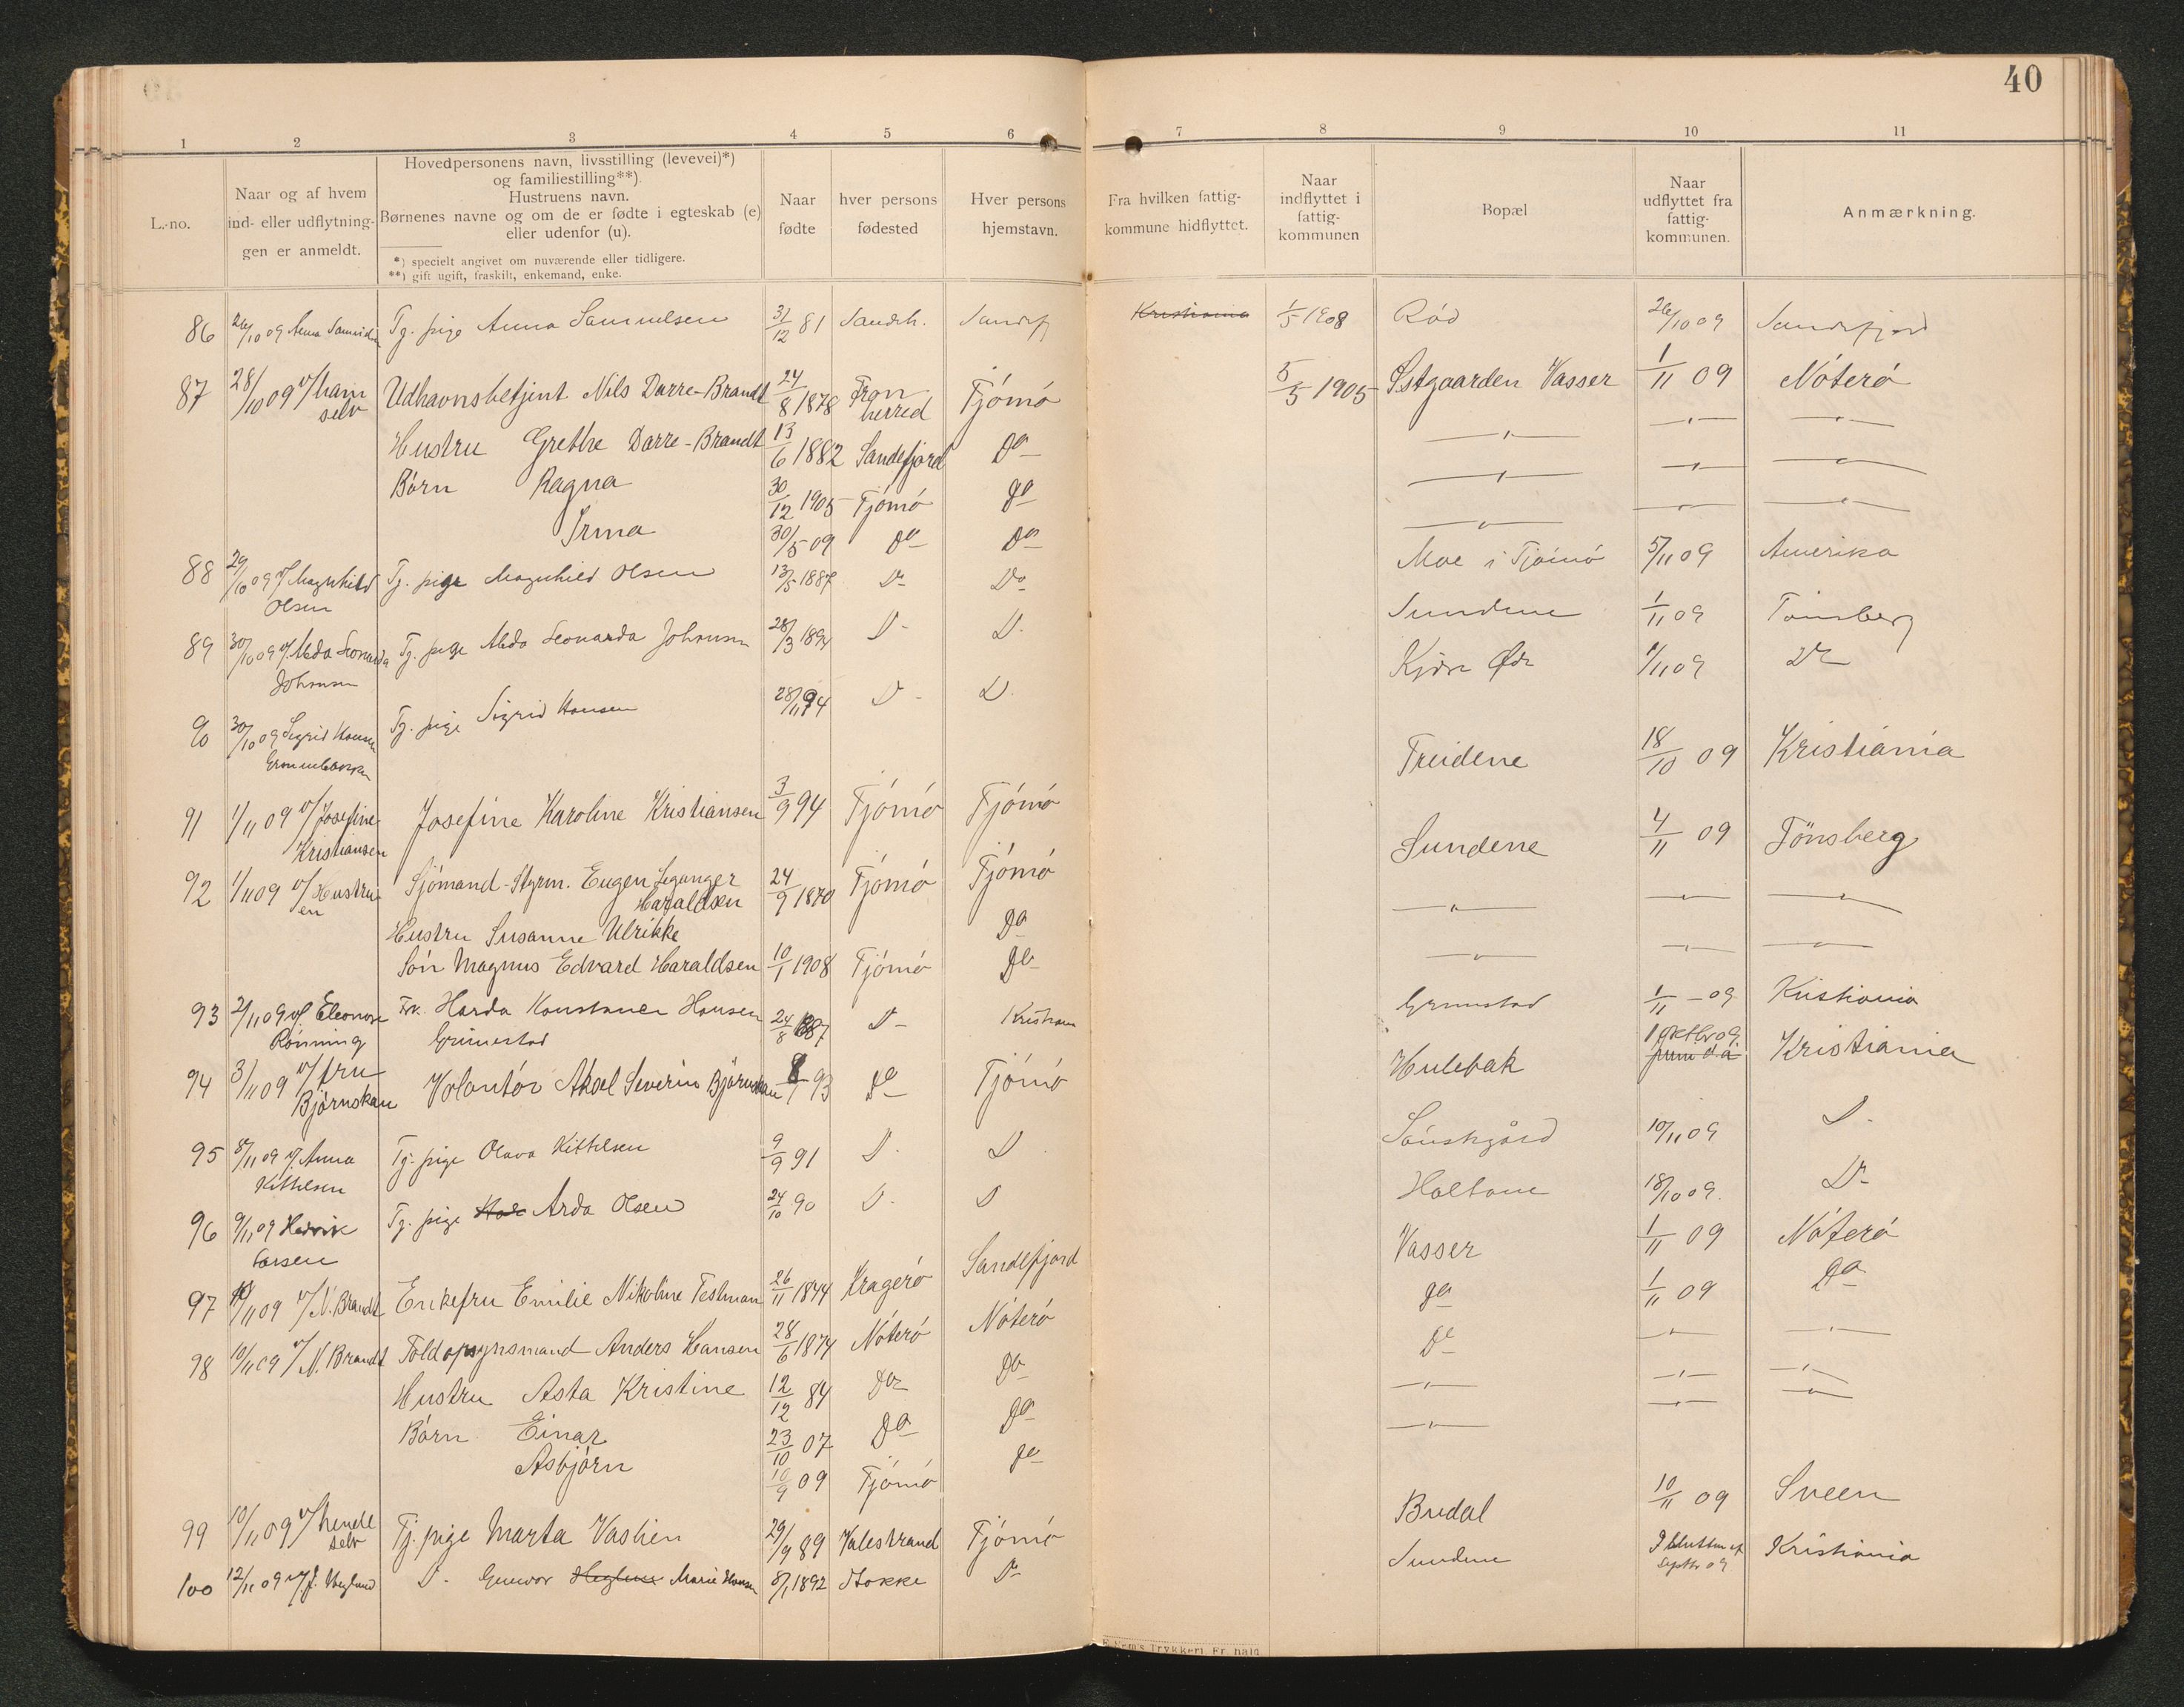 40
1 2 3 4 5 6 7 8 9 10 11
L.-no.
Naar og af hvem
ind- eller udflytnin-
gen er anmeldt.
Hovedpersonens navn, livsstilling (levevei)*)
og familiestilling**).
Hustruens navn.
Børnenes navne og om de er fødte i egteskab (e)
eller udenfor (u).
*) specielt angivet om nuværende eller tidligere.
**) gift ugift, fraskilt, enkemand, enke.
Naar
fødte
hver persons
fødested
Hver persons
hjemstavn.
Fra hvilken fattig-
kommune hidflyttet.
Naar
indflyttet i
fattig-
kommunen
Bopæl
Naar
udflyttet fra
fattig-
kommunen.
Anmærkning.
86 26/10 09 Anna Samuelsen Tj. pige Anna Samuelsen 31/12 81 Sandeh. Sandefj Kristiania 1/5 1908 Rød 26/10 09 Sandefjord
87 28/10 09 v/ham selv Udhavnsbetjent Nils Darre-Brandt 24/8 1878 Fron herred Tjømø 5/5 1905 Østgaarden Vasser 1/11 09 Nøterø
Hustru Grethe Darre-Brandt 13/6 1882 Sandefjord Do — " — — " — — " —
Børn Ragna 30/12 1905 Tjømø Do — " — — " — — " —
Irma 30/5 09 Do Do — " — — " — — " —
88 29/10 09 v/ Magnhild Olsen Tj. pige Magnhild Olsen 13/5 1887 Do Do Moe i Tjømø 5/11 09 Amerika
89 30/10 09 v/ Alda Leonarda Johansen Tj. pige Alda Leonarda Johansen 28/3 1894 D- D. Sundene 1/11 09 Tønsberg
90 30/10 09 Sigrid Hansen Tj. pige Sigrid Hansen 28/11 94 D- D. Kjære Ødr 1/11 09 Do
91 1/11 09 v/ Josefine Kristiansen Josefine Karoline Kristiansen 3/9 94 Tjømø Tjømø Treidene 18/10 09 Kristiania
92 1/11 09 v/ Hustruen Sjømand-Styrm. Eugen Leganger Haraldsen 24/9 1870 Tjømø Tjømø Sundene 4/11 09 Tönsberg
Hustru Susanne Ulrikke Do — " — — " — — " —
Søn Magnus Edvard Haraldsen 10/1 1908 Tjømø Do — " — — " — — " —
93 2/11 09 v/ Eleonore Rønning Frk. Harda Konstance Hansen Grimestad 24/8 1887 D- Kristiania Grimestad 1/11 - 09 Kristiania
94 3/11 09 v/ fru Bjørnskau Volontør Aksel Severin Bjørnskau 8/1 93 Do Tjømø Hulebak 1 oktbr 09. Kristiania
95 8/11 09 v/ Anna Kittilsen Tj. pige Olava Kittilsen 9/9 91 D. D 10/11 09 D.
96 9/11 09 Hedvik Larsen Tj. pige Arda Olsen 24/10 90 D. D Holtane 18/10 09. Do
97 10/11 09 v/ N. Brandt Enkefru Emilie Nikoline Testman 26/11 1844 Kragerø Sandefjord Vasser 1/11 09 Nøterø
98 10/11 09 v/ N. Brandt Toldopsynsmand Anders Hansen 28/6 1874 Nøterø Nøterø Do 1/11 09 Do
Hustru Asta Kristine 12/12 84 Do Do Do — " — — " —
Børn Einar 23/10 07 Do Do — " — — " — — " —
Asbjørn 10/9 09 Tjømø Do — " — — " — — " —
99 10/11 09 v/ hende selv Tj. pige Marta Vastien 29/9 89 Valestrand Tjømø Budal 10/11 09 Sveen
100 12/11 09 v/ J. Høglund D. Gunvor Marie Hansen 8/1 1892 Stokke Do Sundene I slutten af Septbr 09 Kristiania